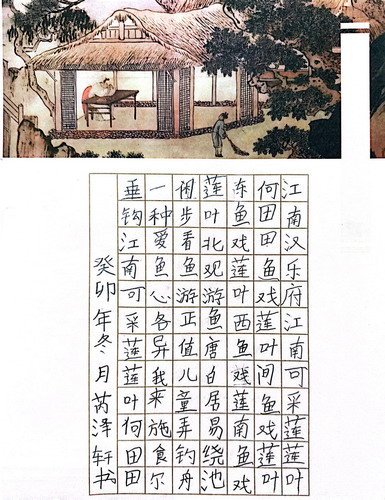 江南汉乐府江南可采莲莲叶
何田田鱼戏莲叶间鱼戏莲叶
东鱼戏莲叶西鱼戏莲南鱼戏
莲叶北观游鱼唐白居易绕池
闲步看鱼游正值儿童弄钓舟
一种爱鱼心各异我来施食尔
垂钩江南可采莲莲叶何田田
癸卯年冬月芮泽轩书